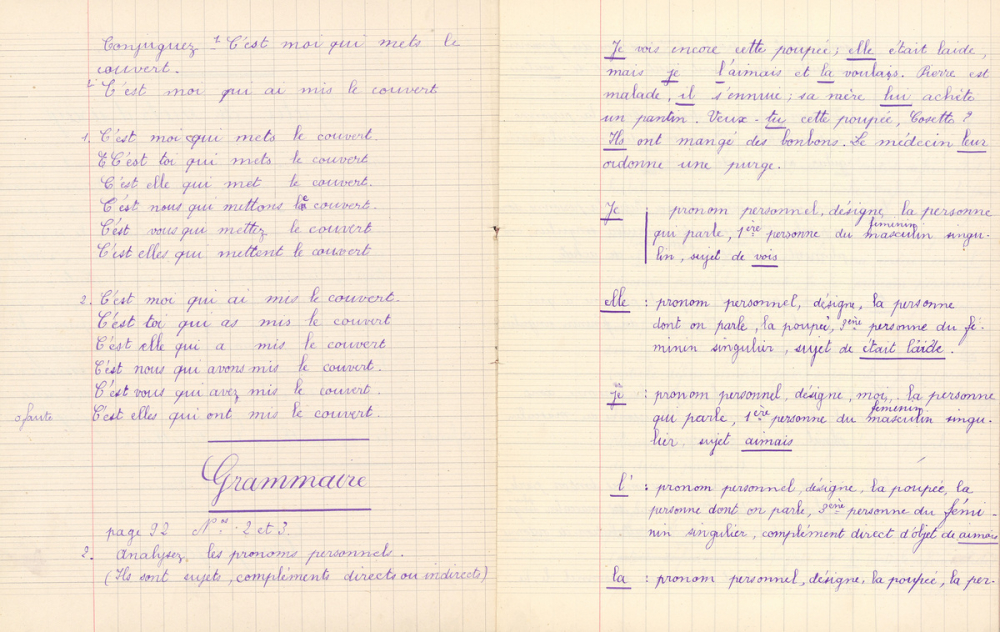 Conjuguez 1° C'est moi qui mets le
couvert.
2° C'est moi qui ai mis le couvert
1. C'est moi qui mets le couvert.
C'est toi qui mets le couvert
C'est elle qui met le couvert.
C'est nous qui mettons le couvert.
C'est vous qui mettez le couvert
C'est elles qui mettent le couvert
2. C'est moi qui ai mis le couvert.
C'est toi qui as mis le couvert
C'est elle qui a mis le couvert
C'est nous qui avons mis le couvert.
C'est vous qui avez mis le couvert.
0 faute C'est elles qui ont mis le couvert.
Grammaire
page 22 Nos 2 et 3.
2. Analysez les pronoms personnels.
(Ils sont sujets, compléments directs ou indirects)
Je vois encore cette poupée; elle était laide,
mais je l'aimais et la voulais. Pierre est
malade, il s'ennuie; sa mère lui achète
un pantin. Veux-tu cette poupée, Cosette?
Ils ont mangé des bonbons. Le médecin leur
ordonne une purge.
Je : pronom personnel, désigne, la personne
qui parle, 1ère personne du masculin féminin singu-
lin, sujet de vois
elle : pronom personnel, désigne, la personne
dont on parle, la poupée, 3ème personne du fé-
minin singulier, sujet de était laide.
je : pronom personnel, désigne, moi, la personne
qui parle, 1ère personne du masculin féminin singu-
lier sujet aimais
l' : pronom personnel, désigne, la poupée, la
personne dont on parle, 3ème personne du fémi-
nin singulier, complément direct d'objet de aimais
la : pronom personnel, désigne, la poupée, la per-